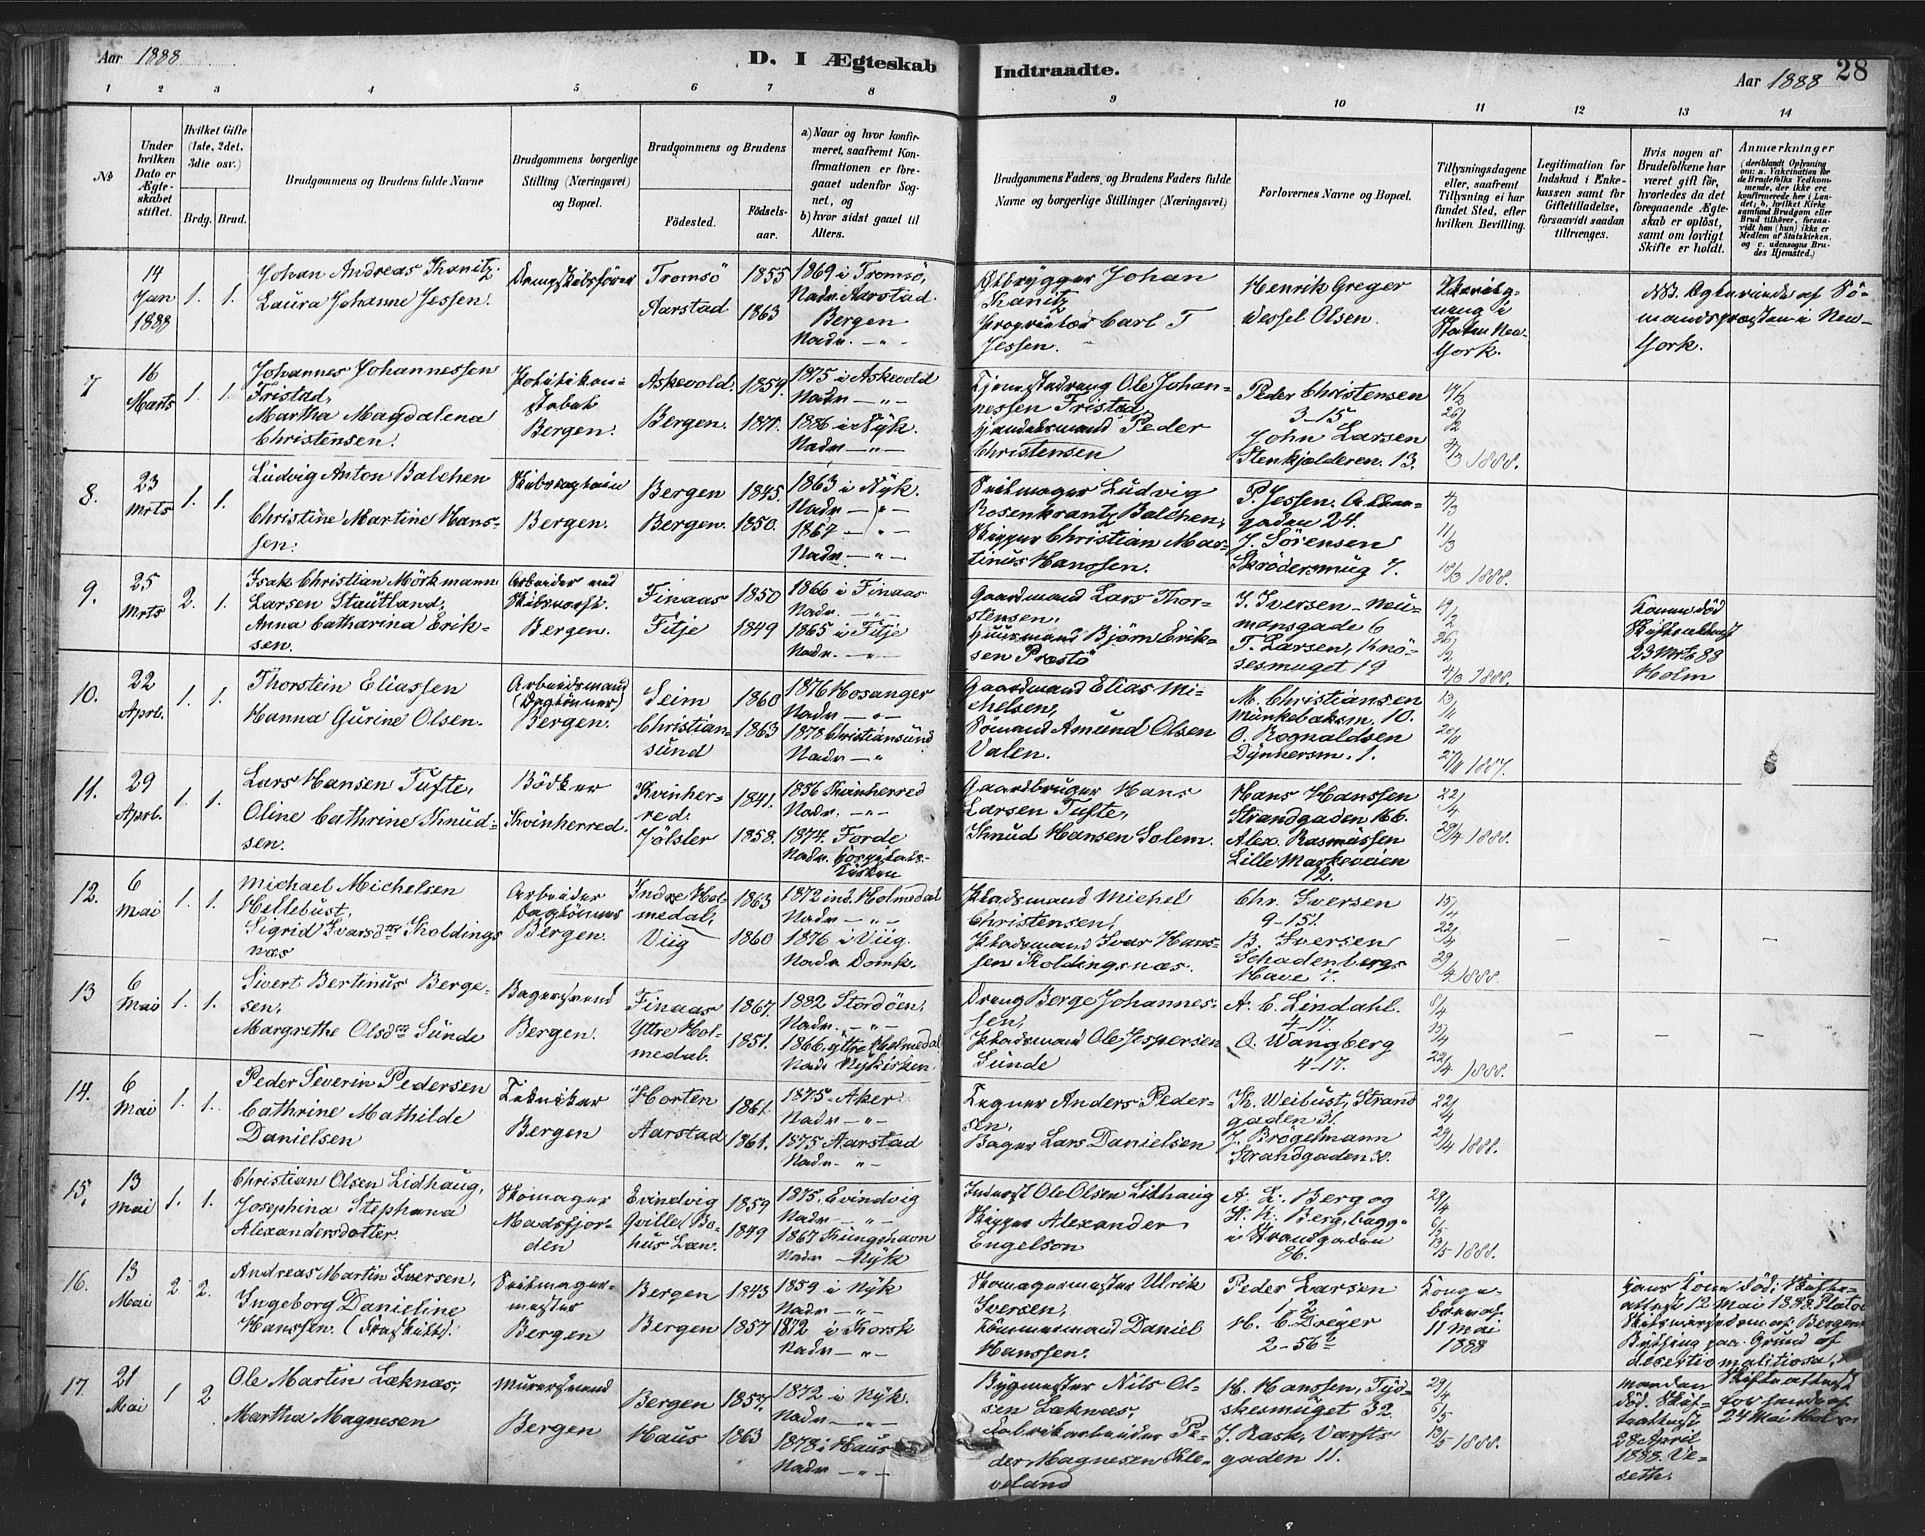 Aar 1888
D. I Ægteskab
Indtraadte.
Aar 1888
28
1 2 3 4 5 6 7 8 9 10 11 12 13 14
No
Under hvilken Dato er Ægteskabet stiftet.
Hvilket Gifte (1ste, 2det, 3die osv.)
Brdg. Brud.
Brudgommens og Brudens fulde Navne
Brudgommens borgerlige Stilling (Næringsvei) og Bopæl.
Brudgommens og Brudens
Födested.
Födselsaar.
a) Naar og hvor konfirmeret, saafremt Konfirmationen er foregaaet udenfor Sognet, og
b) hvor sidst gaaet til Alters.
Brudgommens Faders og Brudens Faders fulde Navne og borgerlige Stillinger (Næringsvei)
Forlovernes Navne og Bopæl.
Tillysningsdagene eller, saafremt Tillysning ei har fundet Sted, efter hvilken Bevilling.
Legitimation for Indskud i Enkekassen samt for Giftetilladelse, forsaavidt saadan tiltrænges.
Hvis nogen af Brudefolkene har været gift för, hvorledes da det foregaaende Ægteskab er oplöst, samt om lovligt Skifte er holdt.
Anmærkninger
(deriblandt Oplysning om: a. Vakcination for de Brudefolks Vedkommende, der ikke ere konfirmerede her i Landet; b. hvilket Kirkesamfund Brudgom eller Brud tilhörer, forsaavidt han (hun) ikke er Medlem af Statskirken, og c. udensogns Brudes Hjemsted.)
14 Jan 1888
1. 1.
Johan Andreas Kanitz
Laura Johanne Jessen.
Dampskibsförer
Tromsö 1855
Aarstad 1863
1869 i Tromsö,
Nadv. Aarstad.
Bergen
Nadv. — " —
Ölbrygger Johan
Kanitz
Proprietær Carl T
Jessen.
Henrik Greger
Wessel Olsen.
Staten New-
York.
NB. Ægteviede af Sö-
mandspresten i New-
York.
7 16 Marts 1. 1.
Johannes Johannessen
Fristad,
Martha Magdalena
Christensen.
Politikon-
stabel
Bergen.
Askevold. 1859.
Bergen.
1875 i Askevold
Nadv. — " —
1886 i Nyk.
Nadv. — " —
Tjenestedreng Ole Johan-
nessen Fristad,
Handelsmand Peder
Christensen
Peder Christensen
3-15
John Larsen
Stenkjelderen. 13.
19/2
26/2
4/3 1888.
8. 23 Mrts 1. 1.
Ludvig Anton Balchen
Christine Martine Hans-
sen.
Skibscaptain
Bergen.
Bergen 1845.
Bergen. 1850.
1863 i Nyk.
Nadv. — " —
1867 — " —
Nadv. — " —
Seilmager Ludvig
Rosenkrantz Balchen,
Skipper Christian Mar-
tinus Hanssen.
P. Jessen.
gaden 24.
J. Sörensen
Skrödersmug 7.
4/3
11/3
18/3 1888.
9. 25 Mrts 2. 1.
Isak Christian Mörkmann
Larsen Stautland,
Anna Catharina Erik-
sen.
Arbeider ved
Skibsværft.
Bergen.
Finaas 1850
Fitje 1849
1866 i Finaas
Nadv. — " —
1865 i Fitje
Nadv. — " —
Gaardmand Lars Thor-
stensen.
Huusmand Björn Erik-
sen Præstö
J. Iversen - Neu-
mansgade 6
T. Larsen, Knö-
sesmuget 19
19/2
26/2
4/3 1888.
Konen död
Skifteattest
23 Mrts 88
Holm
10. 22 Aprl. 1. 1.
Thorstein Eliassen
Hanna Gurine Olsen.
Arbeidsmand
(Daglönner)
Bergen.
Seim 1860
Christian-
sund 1863
1876 Hosanger
Nadv. — " —
1878 Christiansund
Nadv. — "
Gaardmand Elias Mi-
chelsen,
Sömand Amund Olsen
Valen.
M. Christiansen
Munkebaksm. 10.
O. Rognaldsen
Dynnersm. 1.
13/11
20/11
27/11 1887.
11. 29 Aprl. 1. 1.
Lars Hansen Tufte,
Oline Cathrine Knud-
sen.
Bödker
Kvinherred.
Kvinher-
red. 1841.
Jölster 1858.
1856 Kvinherred
Nadv. — " —
1874. Förde
Nadv. Hospitals-
kirken
Gaardbruger Hans
Larsen Tufte,
Knud Hansen Solem.
Hans Hanssen
Strandgaden 166.
Alex. Rasmussen
Lille Markeveien
12.
22/4
29/4 1888.
12. 6 Mai 1. 1.
Michael Michelsen
Hellebust,
Sigrid Ivarsdtr Koldings
næs
Arbeider
Daglönner
Bergen.
Indre Hol-
medal, 1863
Viig 1860
1872 ind. Holmedal
Nadv. — " —
1876 i Viig.
Nadv. Domk.
Pladsmand Michel
Christensen,
Pladsmand Ivar Hans-
sen Koldingsnæs.
Chr. Iversen
9-15!
B. Iversen
Schadenbergs
Have 7.
15/4
22/4
29/4 1888.
— — —
13 6 Mai 1. 1.
Sivert Bertinus Berge-
sen,
Margrethe Olsdtr Sünde
Bagersvend
Bergen.
Finaas 1867.
Yttre Hol-
medal. 1851.
1882 Stordöen,
Nadv. — " —
1866. yttre Holmedal
Nadv. Nykirken.
Dreng Berge Johannes-
sen,
Pladsmand Ole Jespersen
Sunde
A. C. Lindahl.
4-17.
O. Wangberg
4-17.
8/4
15/4
22/4 1888.
— — —
14. 6 Mai 1. 1.
Peder Severin Pedersen
Cathrine Mathilde
Danielsen
Tekniker
Bergen
Horten 1861.
Aarstad 1861.
1875. Aker
Nadv. — " —
1875 Aarstad
Nadv. — " —
Tegner Anders Peder-
sen,
Bager Lars Danielsen
K. Weibust, Strand
gaden 31.
J. Brögelmann
Strandgaden 30.
22/4
29/4 1888.
15. 13 Mai 1. 1.
Christian Olsen Lidhaug,
Josephina Stephana
Alexandersdotter.
Skomager
Madsfjor-
den
Evindvig 1859
Qville, Bo-
hus Læn. 1849
1875. Evindvig
Nadv. — " —
1867 Kungshavn
Nadv. — Nyk
Inderst Ole Olsen Lidhaug
Skipper Alexander
Engelson
A. L. Berg og
H. K. Berg, begge
i Strandgaden
86.
29/4
6/5
13/5 1888.
16. 13 Mai 2 2.
Andreas Martin Iversen,
Ingeborg Danieline
Hanssen. (Fraskilt).
Seilmager-
mester
Bergen
Bergen 1843
Bergen 1857
1859 i Nyk
Nadv. — " —
1872 i Korsk
Nadv. — " —
Skomagermester Ulrik
Iversen,
Tömmermand Daniel
Hanssen.
Peder Larsen
H. C. Dreyer
2-56
Konge-
brev af
11 Mai
1888
Hans Kone död; Skifte-
attest 12 Mai 1888.
Skilsmissedom af Bergens
Bything paa Grund af
desertio malitiosa,
17. 21 Mai 1 2
Ole Martin Læknæs,
Martha Magnesen
Murersvend
Bergen
Bergen 1857.
Haus 1863
1872 i Nyk.
Nadv. — " —
1878 i Haus
Nadv. — " —
Bygmester Nils Ol-
sen Læknæs,
Fabrikarbeider Pe-
der Magnesen Kle-
veland
H. Hanssen, Tyd-
skesmuget 32
J. Rask, Værfts-
gaden 11.
29/4
6/5
13/5 1888.
Manden
död. Skif-
teattest
28 April
1888. Ve-
seth.
Skifteattest
for hende af
24 Mai Holm